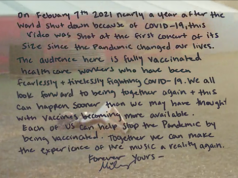 On Febuary 7th 2021 nearly a year after the
World shut down because of COVID-19, this
Video was shot at the first concert of its
Size since the Pandemic changed our lives.
The audience here is fully vaccinated
health care workers who have been
fearlessly + tirelessly fighting COVID-19. We all
look forward to being together again + this
can happen sooner than we may have thought
with vaccines becoming more available.
Each of us can help stop the Pandemic by
being vaccinated. Together we can make
the experience of live music a reality again.
Forever Yours -